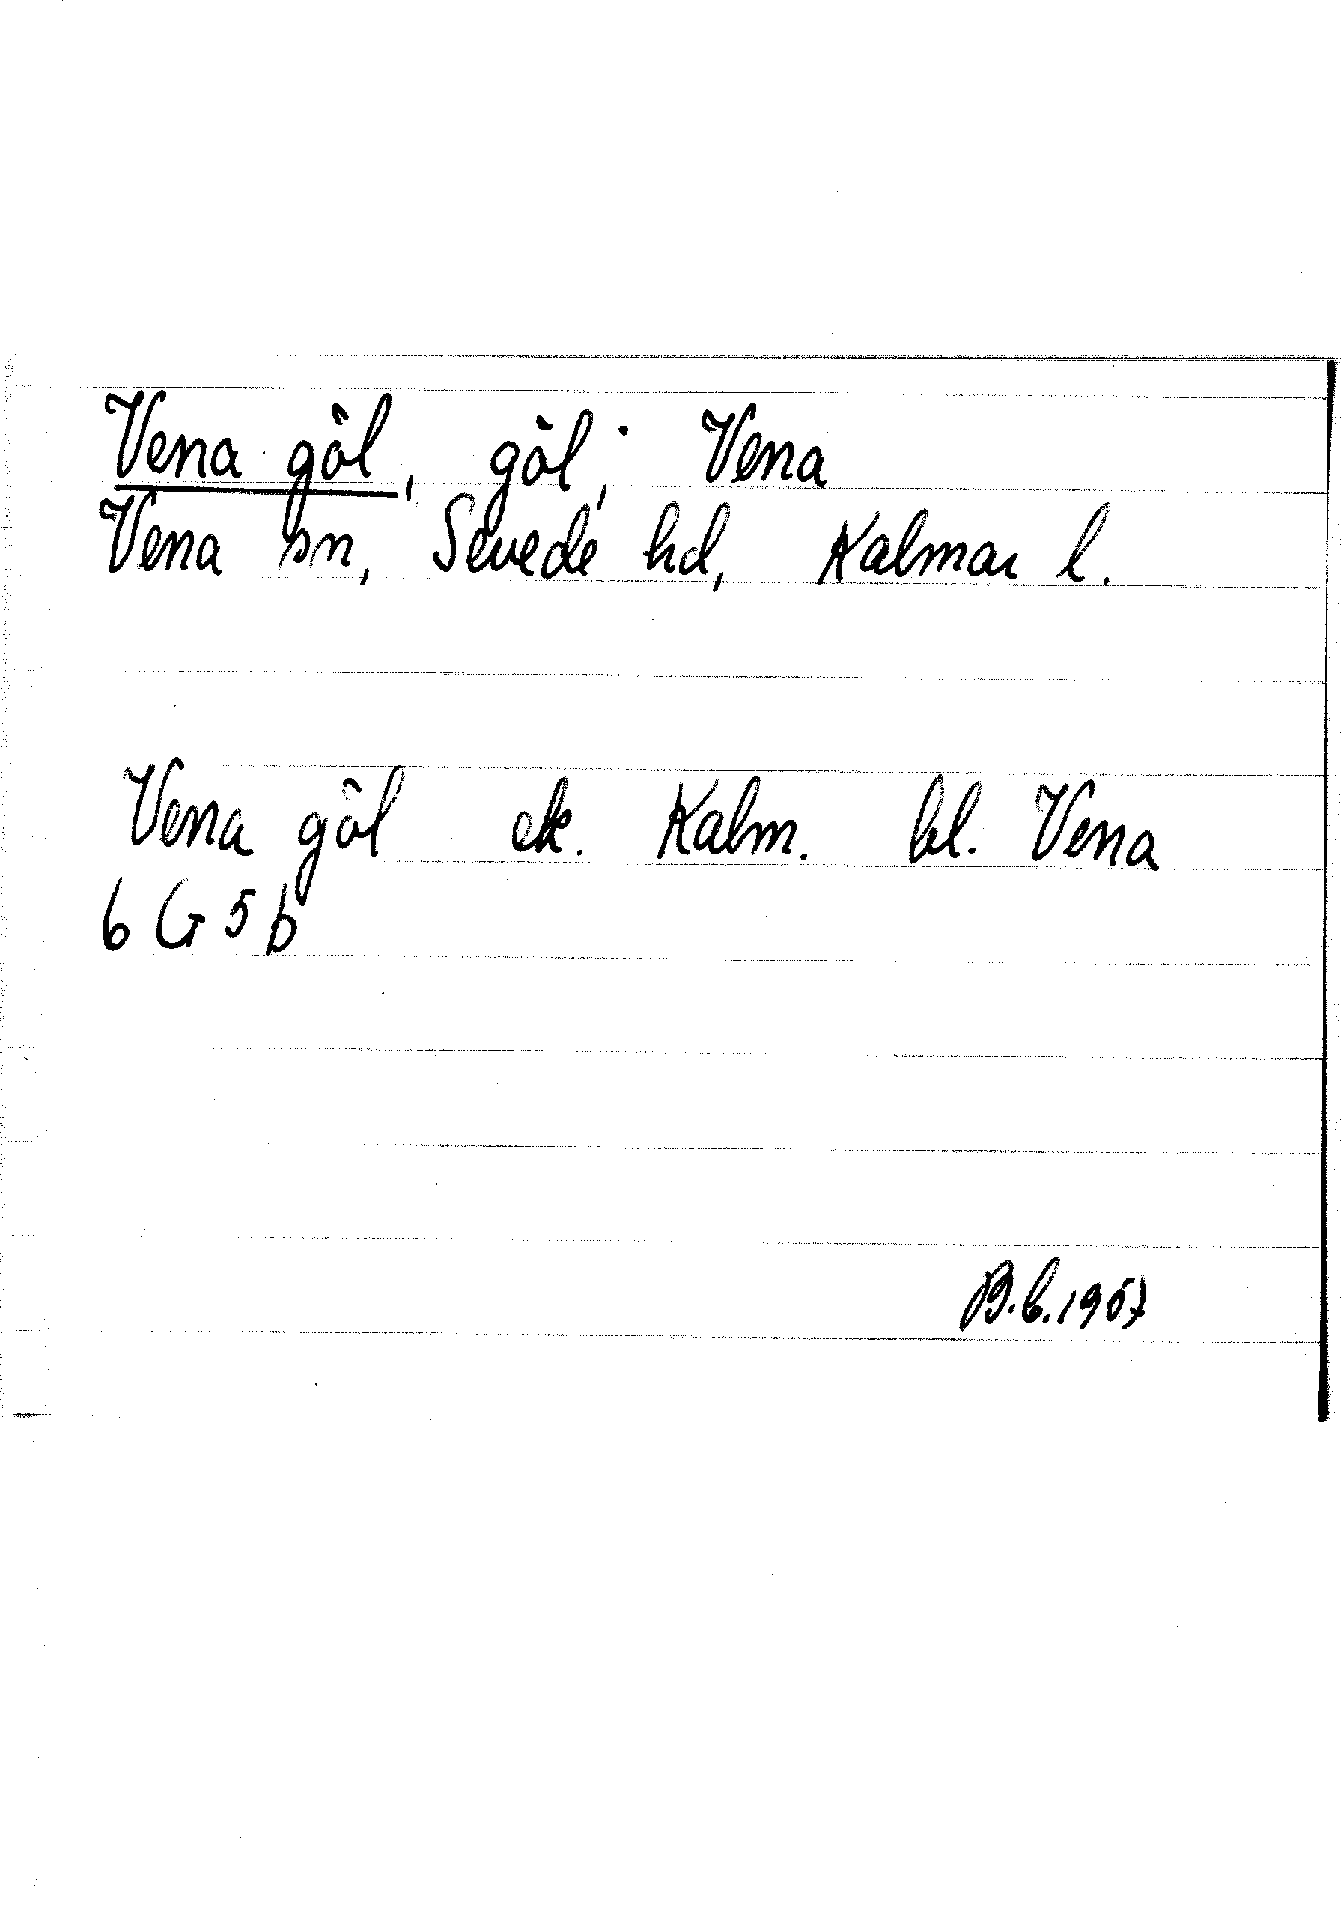 Vena göl, göl, Vena
Vena sn, Sevede hd, Kalmar l.
Vena göl ek. Kalm. bl. Vena
6 G 5 b
B.b.1957